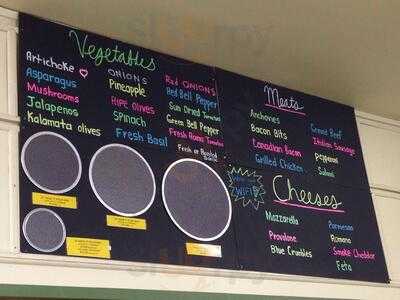 Vegetables
Artichoke
Asparagus
Mushrooms
Jalapenos
Kalamata olives
ONIONS
Pineapple
Ripe Olives
Spinach
Fresh Basil
Red Onions
Red Bell Pepper
Sun Dried Tomatoes
Green Bell Pepper
Fresh Roma Tomatoes
Fresh or Roasted
Garlic
Meats
Anchovies
Bacon Bits
Canadian Bacon
Grilled Chicken
Ground Beef
Italian Sausage
Pepperoni
Salami
WIFI
Cheeses
Mozzarella
Provolone
Bleu Crumbles
Parmesan
Romano
Smoke Cheddar
Feta